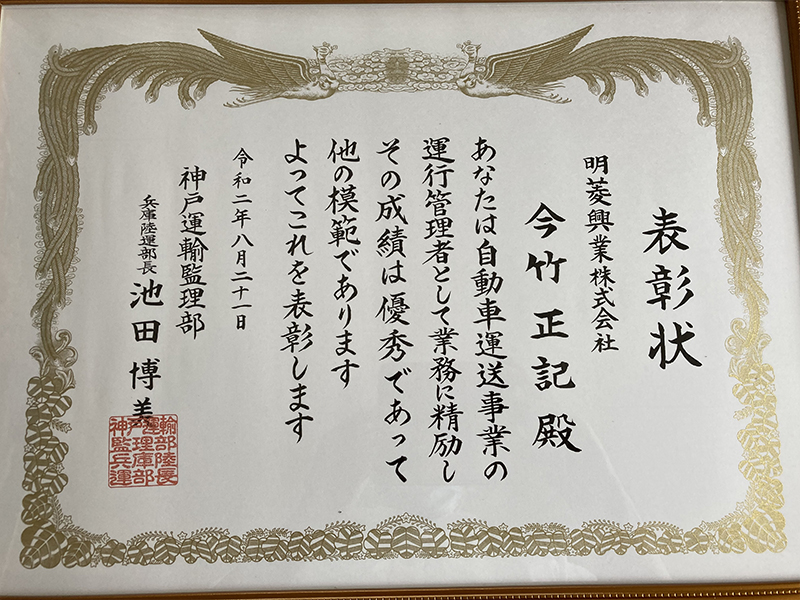 表彰状
明菱興業株式会社
今竹正記殿
あなたは自動車運送事業の
運行管理者として業務に精励し
その成績は優秀であって
他の模範であります
よってこれを表彰します
令和二年八月二十一日
神戸運輸監理部
兵庫陸運部長 池田博美
輸部陸長
運理庫部
神監兵運